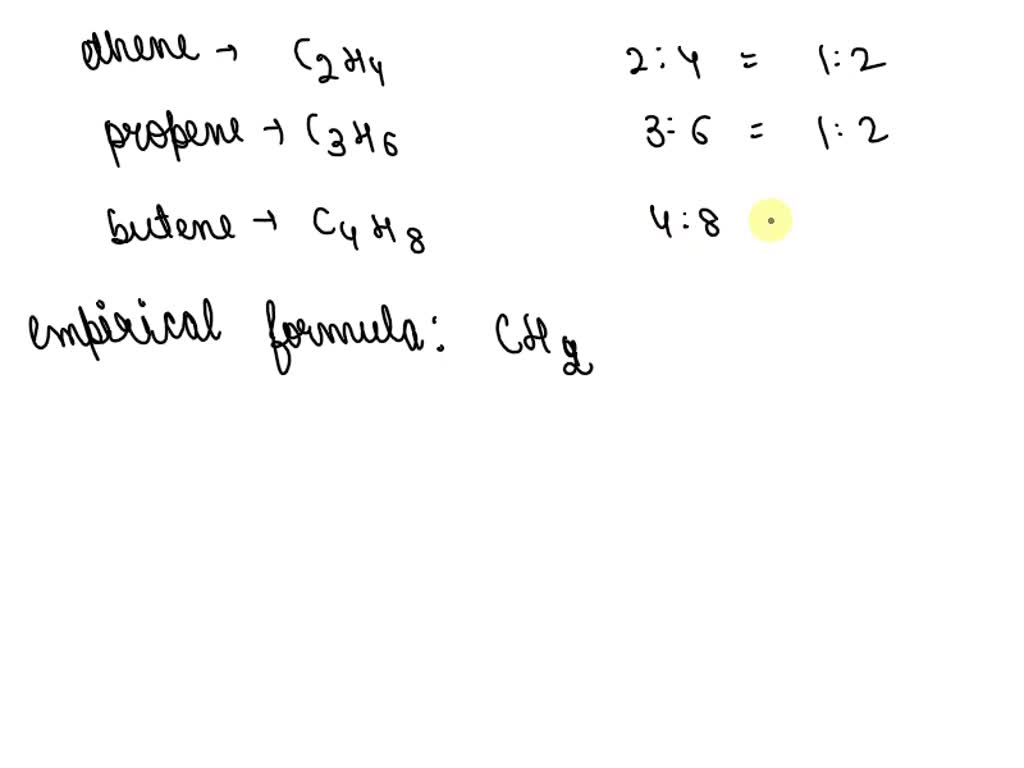 ethene → C2H4 2:4 = 1:2
propene → C3H6 3:6 = 1:2
butene → C4H8 4:8
empirical formula: CH2